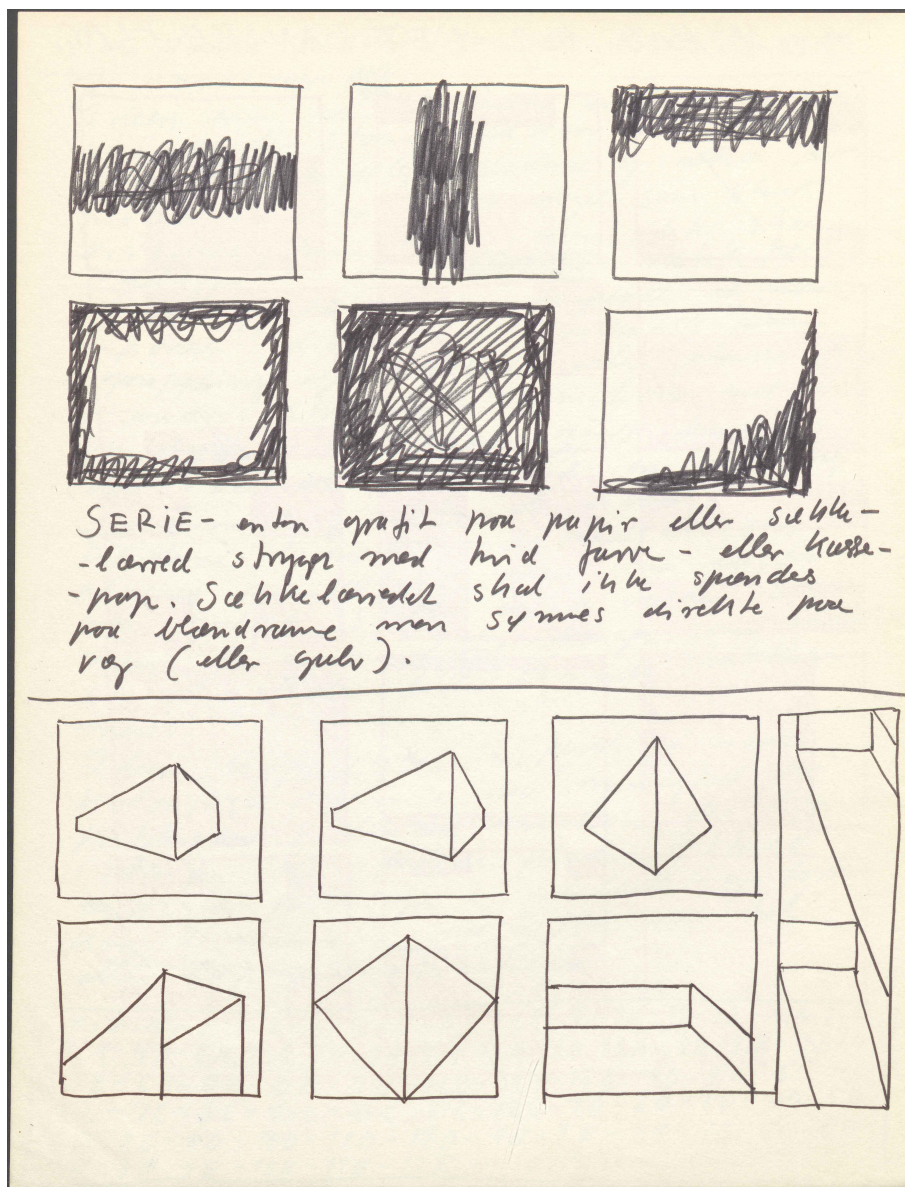 SERIE - enten grafit paa papir eller sække-
-lærred strøget med hvid farve - eller Kasse-
-pap. Sækkelærredet skal ikke spændes
paa blændramme men sømmes direkte paa
væg (eller gulv).